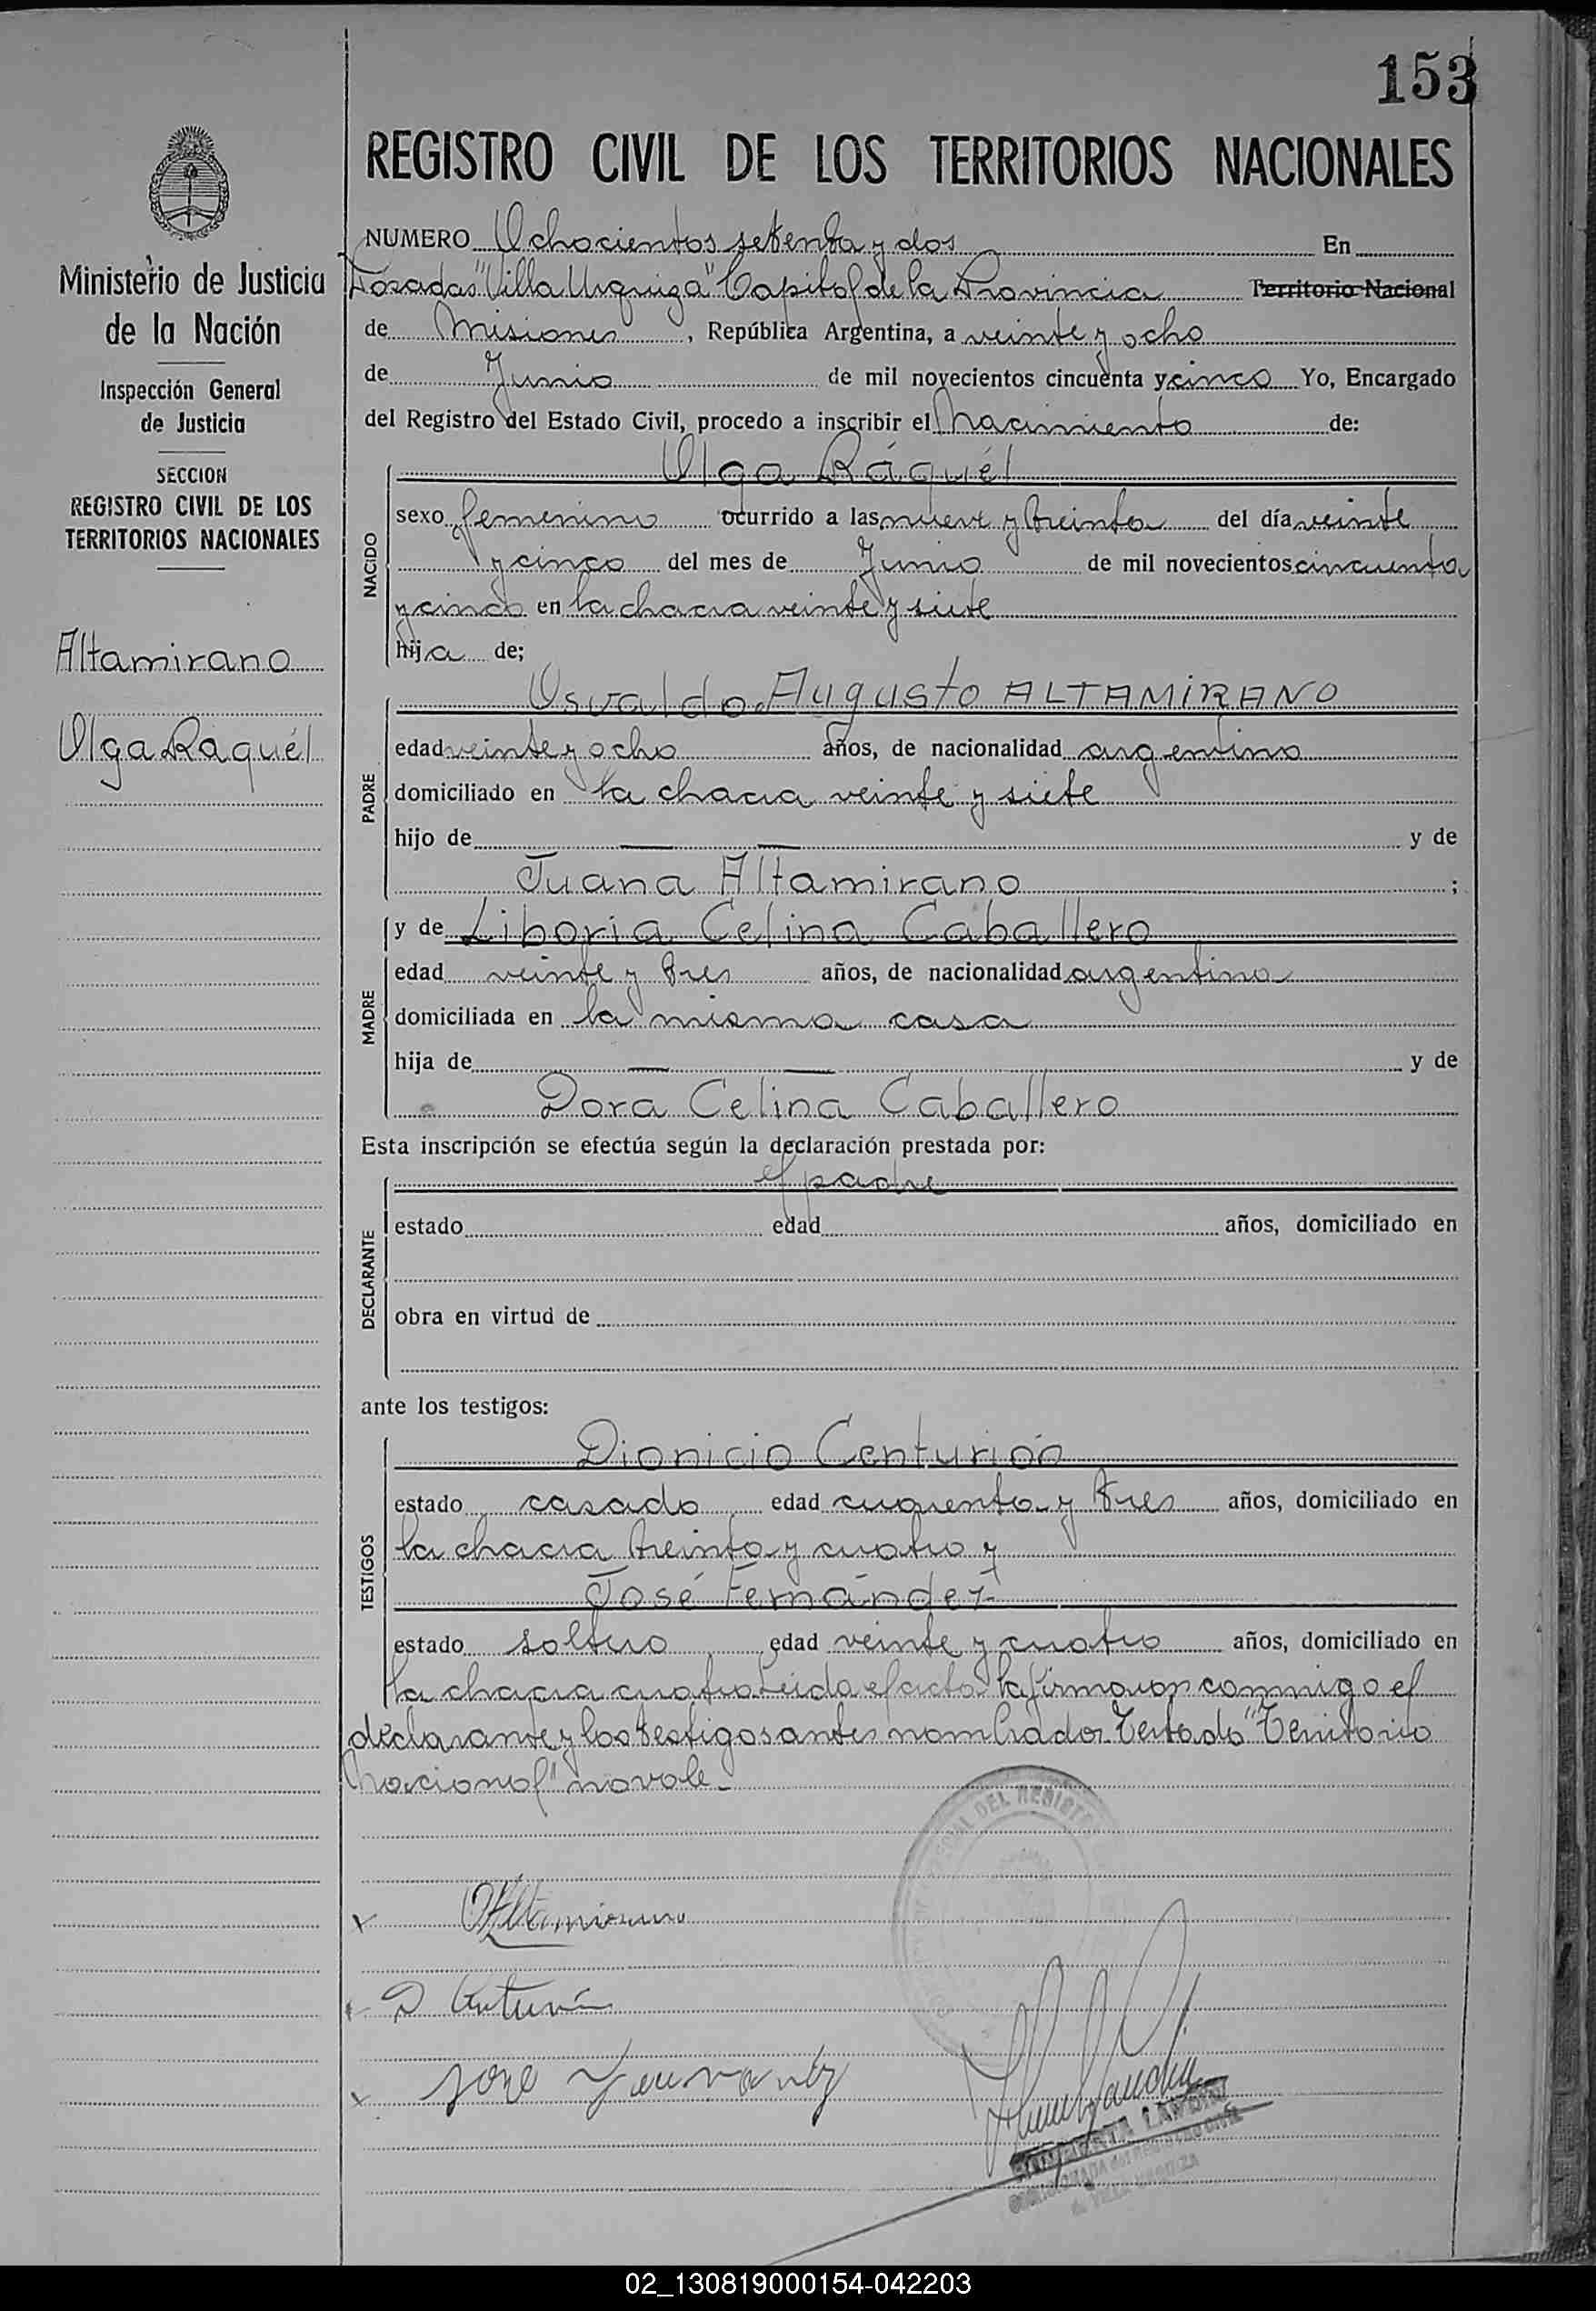 153
REGISTRO CIVIL DE LOS TERRITORIOS NACIONALES
Ministerio de Justicia
de la Nación
Inspección General
de Justicia
SECCION
REGISTRO CIVIL DE LOS
TERRITORIOS NACIONALES
Altamirano
Olga Raquél
NUMERO Ochocientos setenta y dos En
Posadas "Villa Urquiza" Capital de la Provincia Territorio Nacional
de Misiones, República Argentina, a veinte y ocho
de Junio de mil novecientos cincuenta y cinco Yo, Encargado
del Registro del Estado Civil, procedo a inscribir el Nacimiento de:
NACIDO
Olga Ráquél
sexo femenino ocurrido a las nueve y treinta del día veinte
y cinco del mes de Junio de mil novecientos cincuenta
y cinco en la chacra veinte y siete
hija de;
PADRE
Osvaldo Augusto ALTAMIRANO
edad veinte y ocho años, de nacionalidad argentino
domiciliado en la chacra veinte y siete
hijo de — — y de
Juana Altamirano ;
MADRE
y de Liboria Celina Caballero
edad veinte y tres años, de nacionalidad argentina
domiciliada en la misma casa
hija de — — y de
Dora Celina Caballero
Esta inscripción se efectúa según la declaración prestada por:
DECLARANTE
el padre
estado edad años, domiciliado en
obra en virtud de
ante los testigos:
TESTIGOS
Dionicio Centurión
estado casado edad cuarenta y tres años, domiciliado en
la chacra treinta y cuatro y
José Fernández
estado soltero edad veinte y cuatro años, domiciliado en
la chacra cuatro. Leida el acta la firmaron conmigo el
declarante y los testigos antes nombrados. Testado "Territorio
Nacional" no vale.-
DEL REGISTRO
x OAltamirano
x D Centurión
x José Fernandez
02_130819000154-042203